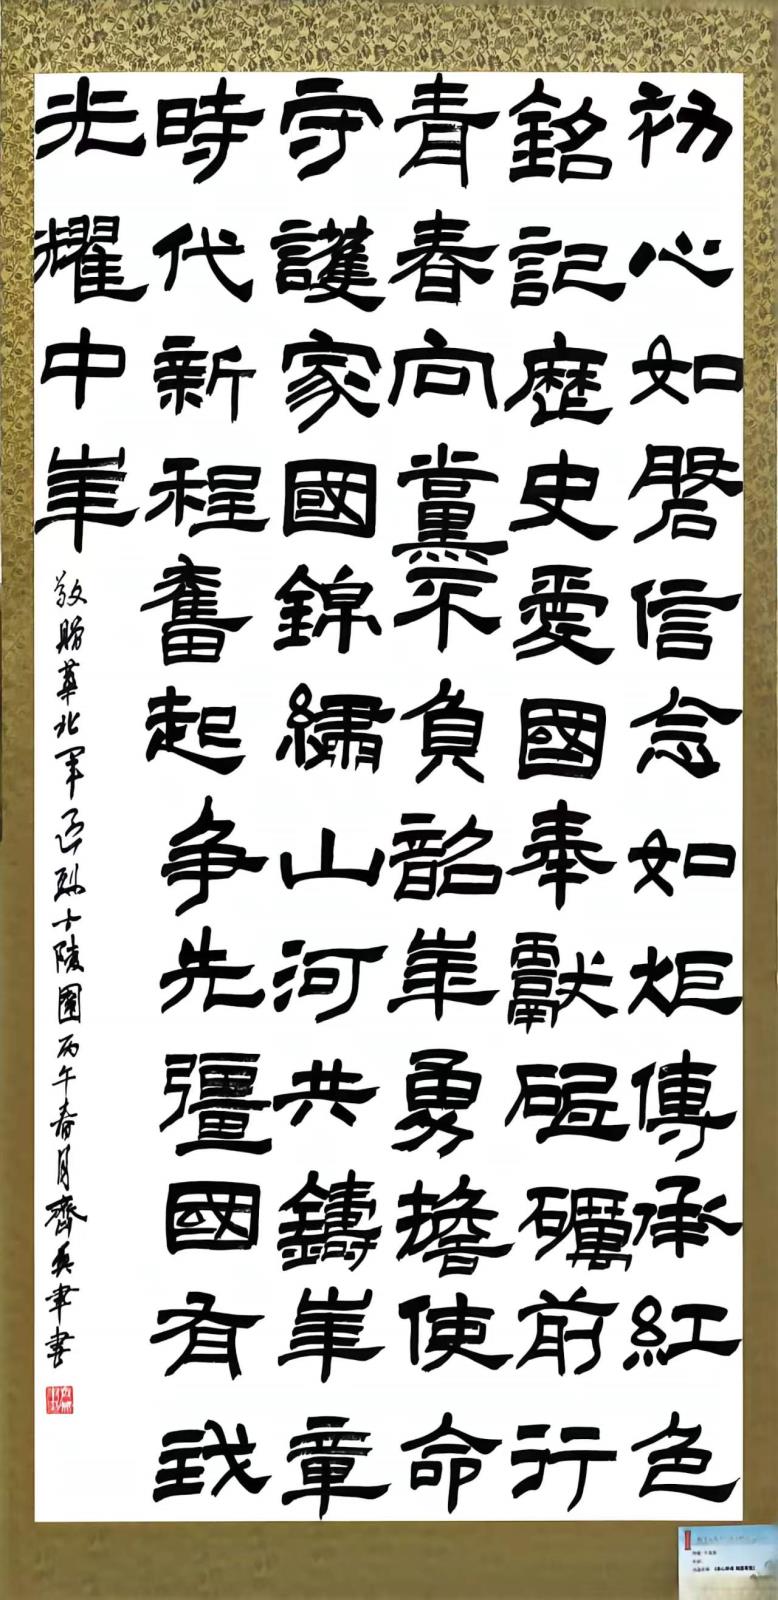 初心如磐信念如炬傳承紅色
銘記歷史愛國奉獻砥礪前行
青春向黨不負韶華勇擔使命
守護家國錦繡山河共鑄華章
時代新程奮起爭先疆國有我
光耀中華
敬賜華北軍區烈士陵園丙午春月齊英聿書